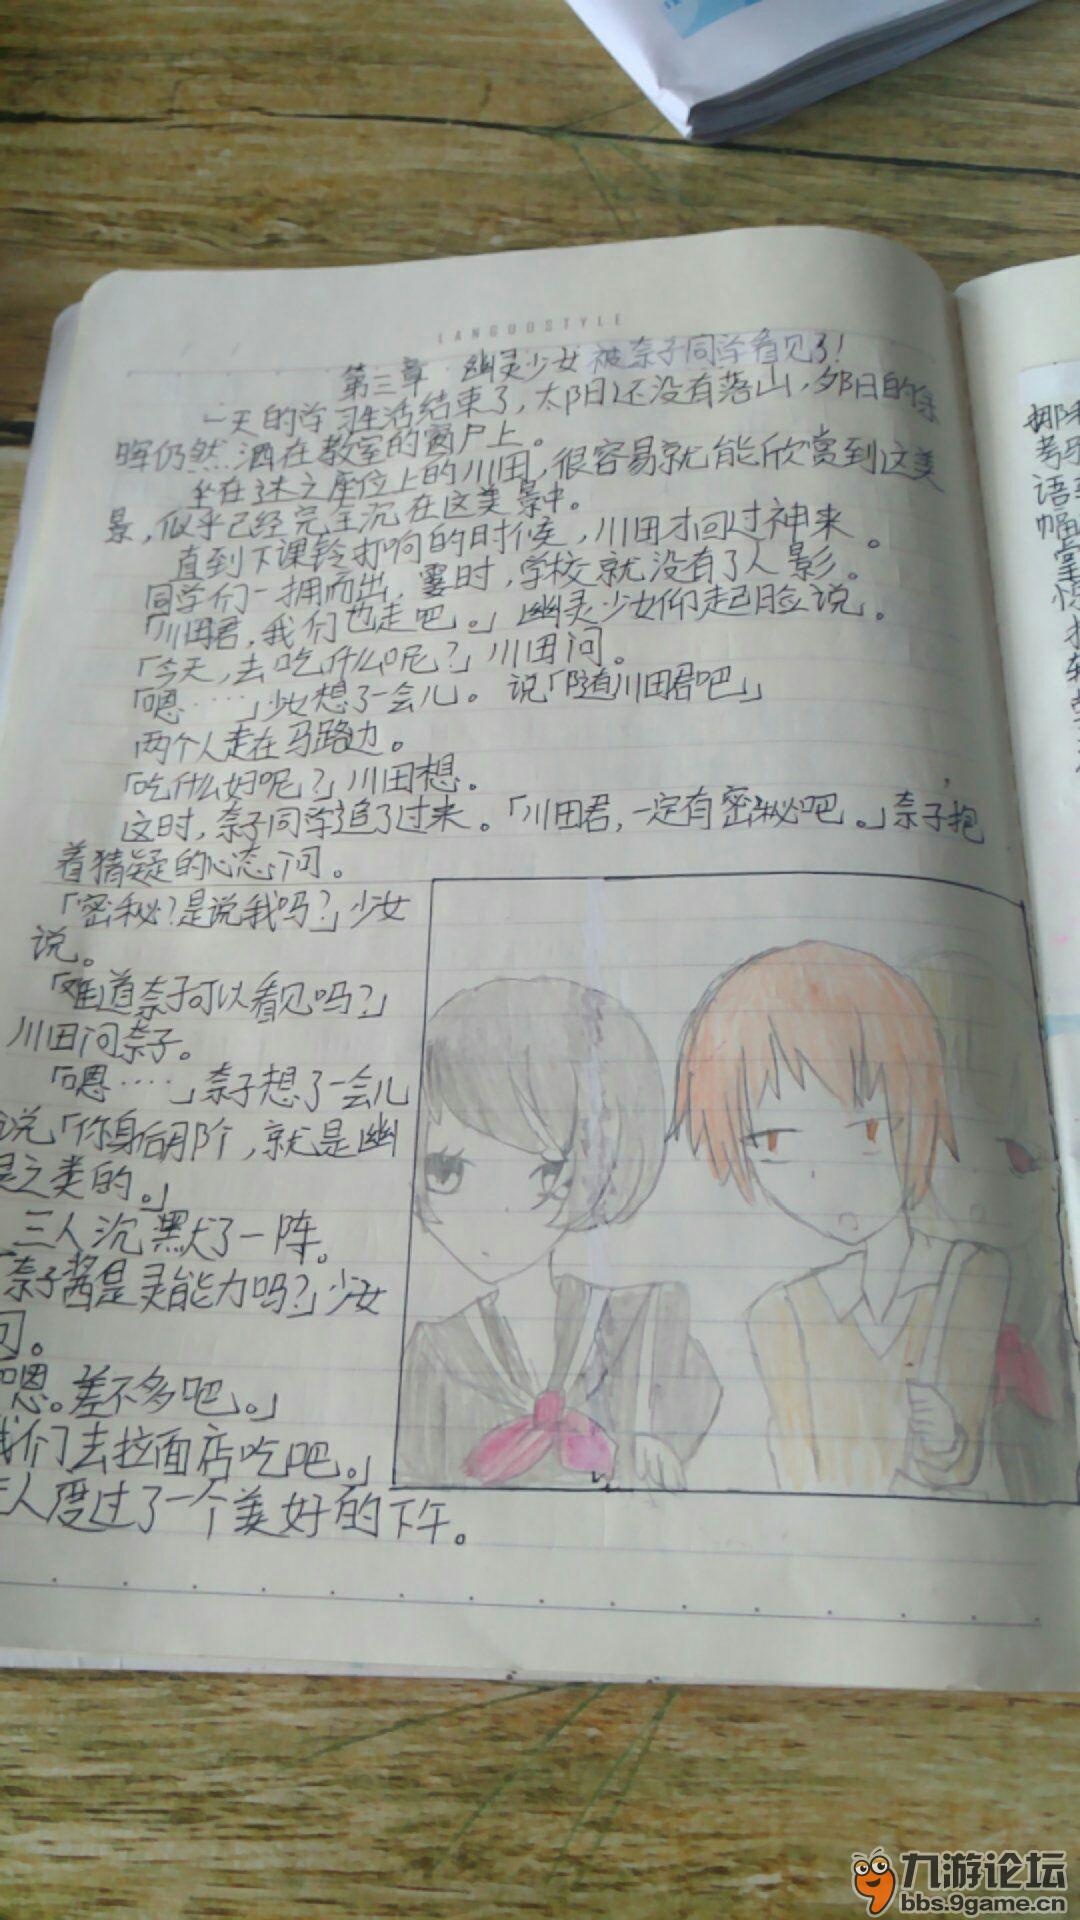 LANGUOSTYLE
第三章 幽灵少女被奈子同学看见了!
一天的学习生活结束了,太阳还没有落山,夕阳的余
晖仍然洒在教室的窗户上。
坐在之座位上的川田,很容易就能欣赏到这美
景,似乎已经完全沉在这美景中。
直到下课铃打响的时候,川田才回过神来。
同学们一拥而出,霎时,学校就没有了人影。
「川田君,我们也走吧。」幽灵少女仰起脸说。
「今天,去吃什么呢?」川田问。
「嗯……」少女想了一会儿。说「随川田君吧」
两个人走在马路边。
「吃什么好呢?」川田想。
这时,奈子同学追了过来。「川田君,一定有密秘吧。」奈子抱
着猜疑的心态问。
「密秘?是说我吗?」少女
说。
「难道奈子可以看见吗?」
川田问奈子。
「嗯……」奈子想了一会儿
说「你身后那个,就是幽
灵之类的。」
三人沉默了一阵。
「奈子酱是灵能力吗?」少女
问。
嗯。差不多吧。」
我们去拉面店吃吧。」
三人度过了一个美好的下午。
那
考
语
幅
掌
惊
九游论坛
bbs.9game.cn